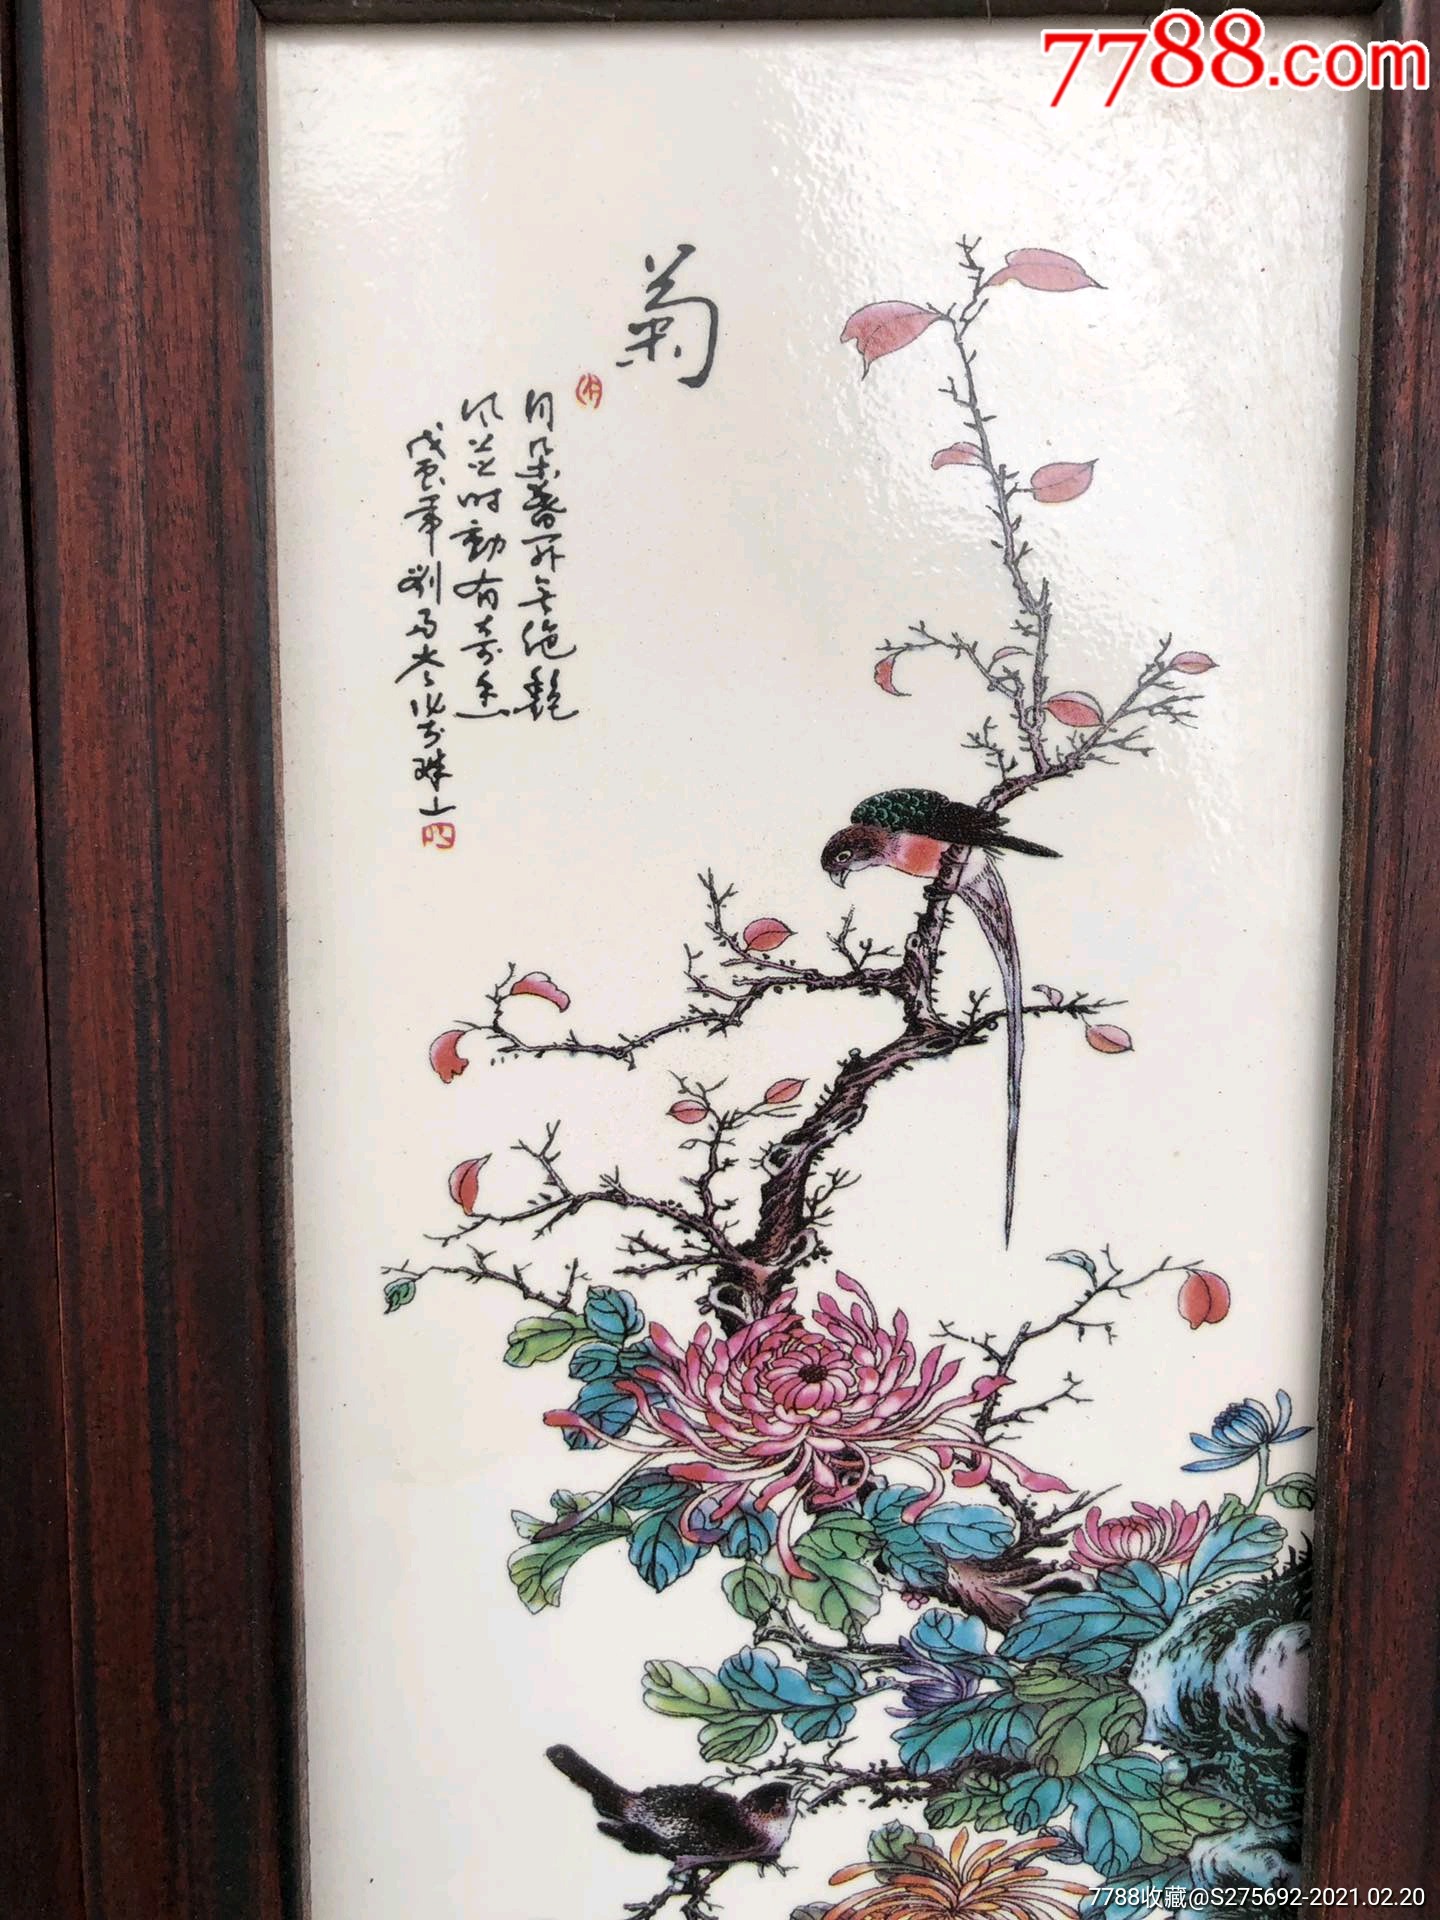 7788.com
菊
月朵暮开无绝艷
风茎时動有奇香
戊寅年劉雨岑作於珠山
7788收藏@S275692-2021.02.20